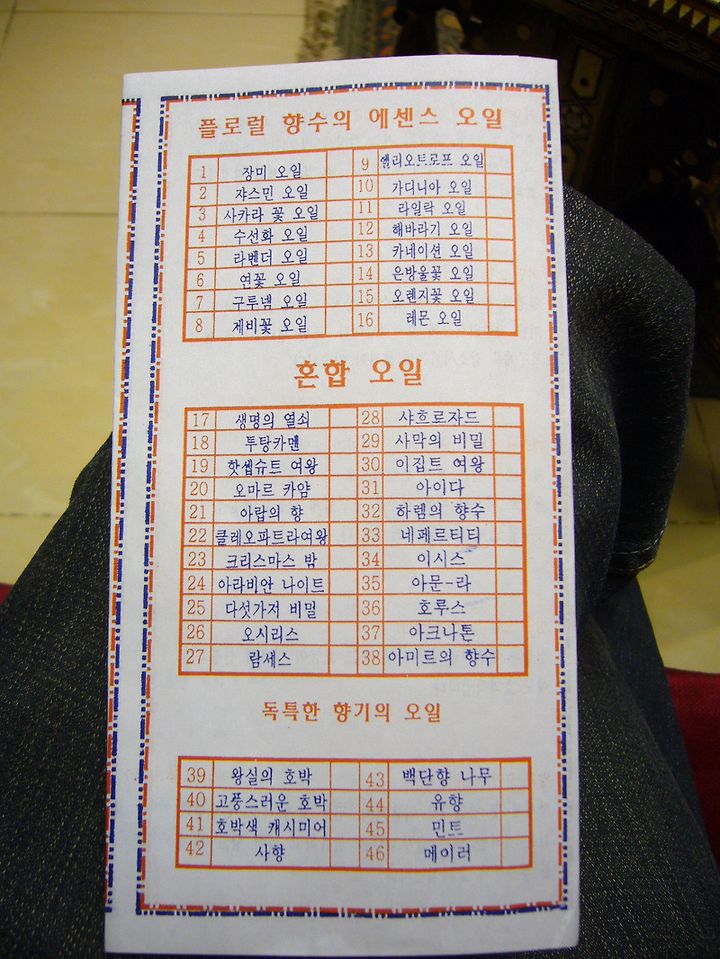 플로럴 향수의 에센스 오일
1 장미 오일 9 헬리오트로프 오일
2 쟈스민 오일 10 가디니아 오일
3 사카라 꽃 오일 11 라일락 오일
4 수선화 오일 12 해바라기 오일
5 라벤더 오일 13 카네이션 오일
6 연꽃 오일 14 은방울꽃 오일
7 구루넴 오일 15 오렌지꽃 오일
8 제비꽃 오일 16 레몬 오일
혼합 오일
17 생명의 열쇠 28 샤흐로자드
18 투탕카멘 29 사막의 비밀
19 핫셉슈트 여왕 30 이집트 여왕
20 오마르 카얌 31 아이다
21 아랍의 향 32 하렘의 향수
22 클레오파트라여왕 33 네페르티티
23 크리스마스 밤 34 이시스
24 아라비안 나이트 35 아문-라
25 다섯가져 비밀 36 호루스
26 오시리스 37 아크나톤
27 람세스 38 아미르의 향수
독특한 향기의 오일
39 왕실의 호박 43 백단향 나무
40 고풍스러운 호박 44 유향
41 호박색 캐시미어 45 민트
42 사향 46 메이러